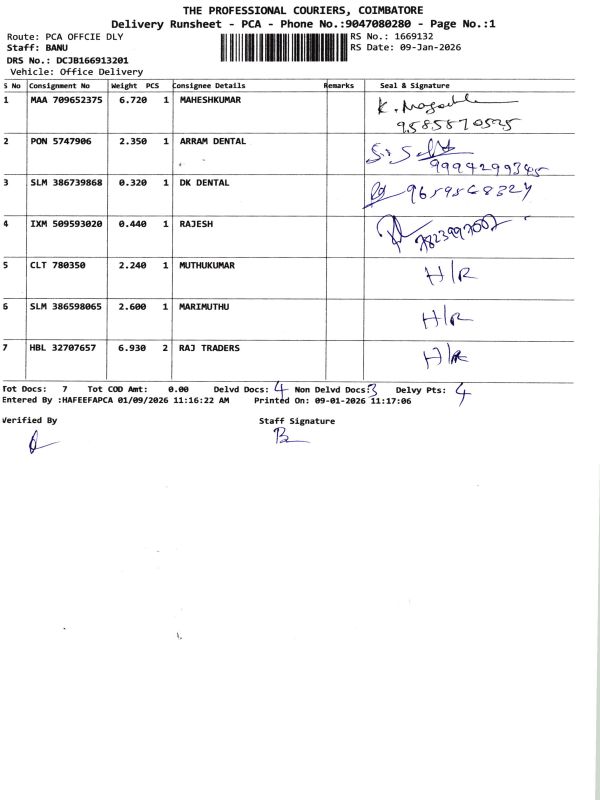 THE PROFESSIONAL COURIERS, COIMBATORE
Delivery Runsheet - PCA - Phone No.:9047080280 - Page No.:1
Route: PCA OFFCIE DLY RS No.: 1669132
Staff: BANU RS Date: 09-Jan-2026
DRS No.: DCJB166913201
Vehicle: Office Delivery
S No Consignment No Weight PCS Consignee Details Remarks Seal & Signature
1 MAA 709652375 6.720 1 MAHESHKUMAR K.
9585870525
2 PON 5747906 2.350 1 ARRAM DENTAL
9994299345
3 SLM 386739868 0.320 1 DK DENTAL 9659568324
4 IXM 509593020 0.440 1 RAJESH 7823997007
5 CLT 780350 2.240 1 MUTHUKUMAR H/R
6 SLM 386598065 2.600 1 MARIMUTHU H/R
7 HBL 32707657 6.930 2 RAJ TRADERS H/R
Tot Docs: 7 Tot COD Amt: 0.00 Delvd Docs: 4 Non Delvd Docs: 3 Delvy Pts: 4
Entered By :HAFEEFAPCA 01/09/2026 11:16:22 AM Printed On: 09-01-2026 11:17:06
Verified By Staff Signature